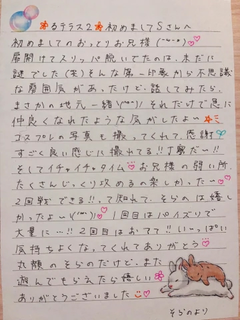 るテラス2 初めましてSさんへ
初めましてのおっとりお兄様(˘ω˘)♡
眉開けてスリッパ脱いでたのは、未だに
謎でした(笑)そんな第一印象から不思議
な雰囲気があったけど、話してみたら、
まさかの地元一緒(°°)それだけで急に
仲良くなれたような気がしたよー
コスプレの写真も撮ってくれて感謝
すごく良い感じに撮れてる!!丁寧だー!!
そしてイチャイチャタイム お兄様の弱い所
たくさんじっくり攻めるの楽しかったー
2回戦できる!!って知れて、そらのは嬉し
かったよー(°°)♡ 1回目はパイズリで
大量に…!!2回目はお口で!!いーっぱい
気持ちよくなってくれてありがとう♡
丸顔のそらのだけど、また
遊んでもらえたら嬉しい
ありがとうございました♡
そらのより